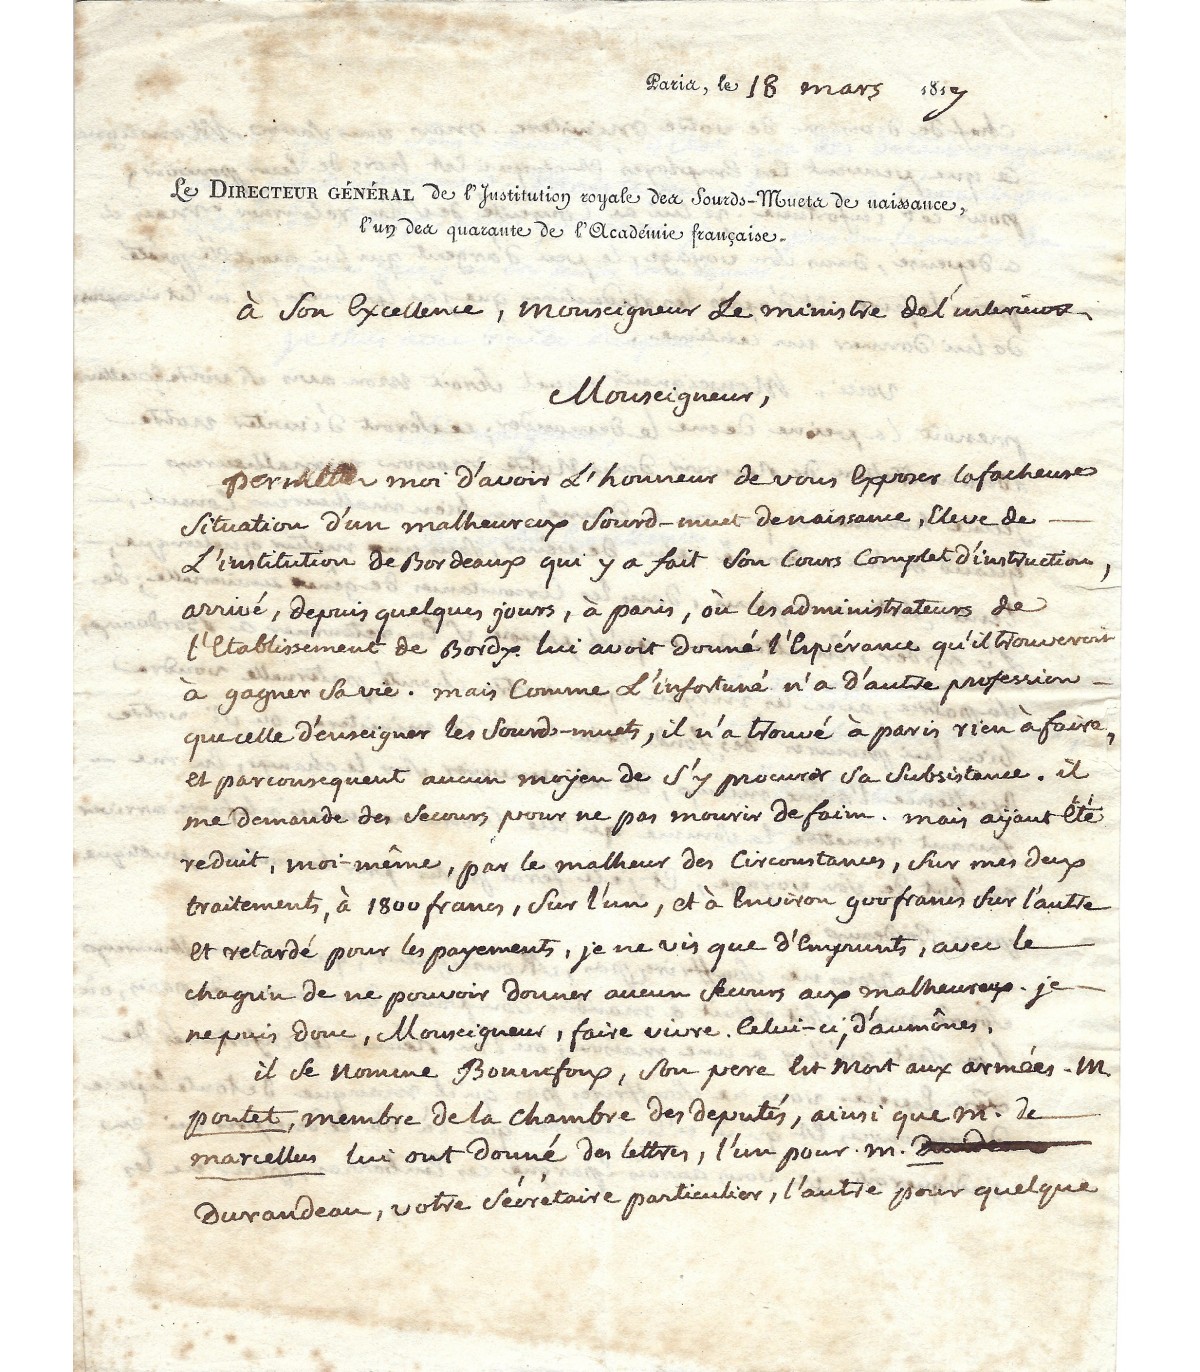 Paris, le 18 mars 1817
Le DIRECTEUR GÉNÉRAL de l'Institution royale des Sourds-Muets de naissance,
l'un des quarante de l'Académie française.
à Son Excellence, Monseigneur Le ministre de l'interieur
Monseigneur,
permettez moi d'avoir L'honneur de vous Exposer la facheuse
Situation d'un malheureux Sourd-muet de naissance, Eleve de
L'institution de Bordeaux qui y a fait Son Cours Complet d'instruction,
arrivé, depuis quelques jours, à paris, où les administrateurs de
l'Etablissement de Bordx. lui avoit donné l'Espérance qu'il trouveroit
à gagner Sa vie. mais Comme L'infortuné n'a d'autre profession
que celle d'enseigner les Sourds-muets, il n'a trouvé à paris rien à faire,
et par consequent aucun moÿen de s'y procurer Sa Subsistance. il
me demande des Secours pour ne pas mourir de faim. mais aÿant Eté
reduit, moi-même, par le malheur des Circonstances, Sur mes deux
traitements, à 1800 francs, Sur l'un, et à Environ 900 francs Sur l'autre
Et retardé pour les payements, je ne vis que d'Emprunts, avec le
chagrin de ne pouvoir donner aucun Secours aux malheureux. je
ne puis donc, Monseigneur, faire vivre. Celui-ci, d'aumônes.
il Se Nomme Bonnefoux, Son pere Est Mort aux armées. M.
poutet, membre de la Chambre des deputés, ainsi que m. de
marcellus lui ont donné des lettres, l'un pour m.
Durandeau, votre Sécrétaire particulier, l'autre pour quelque